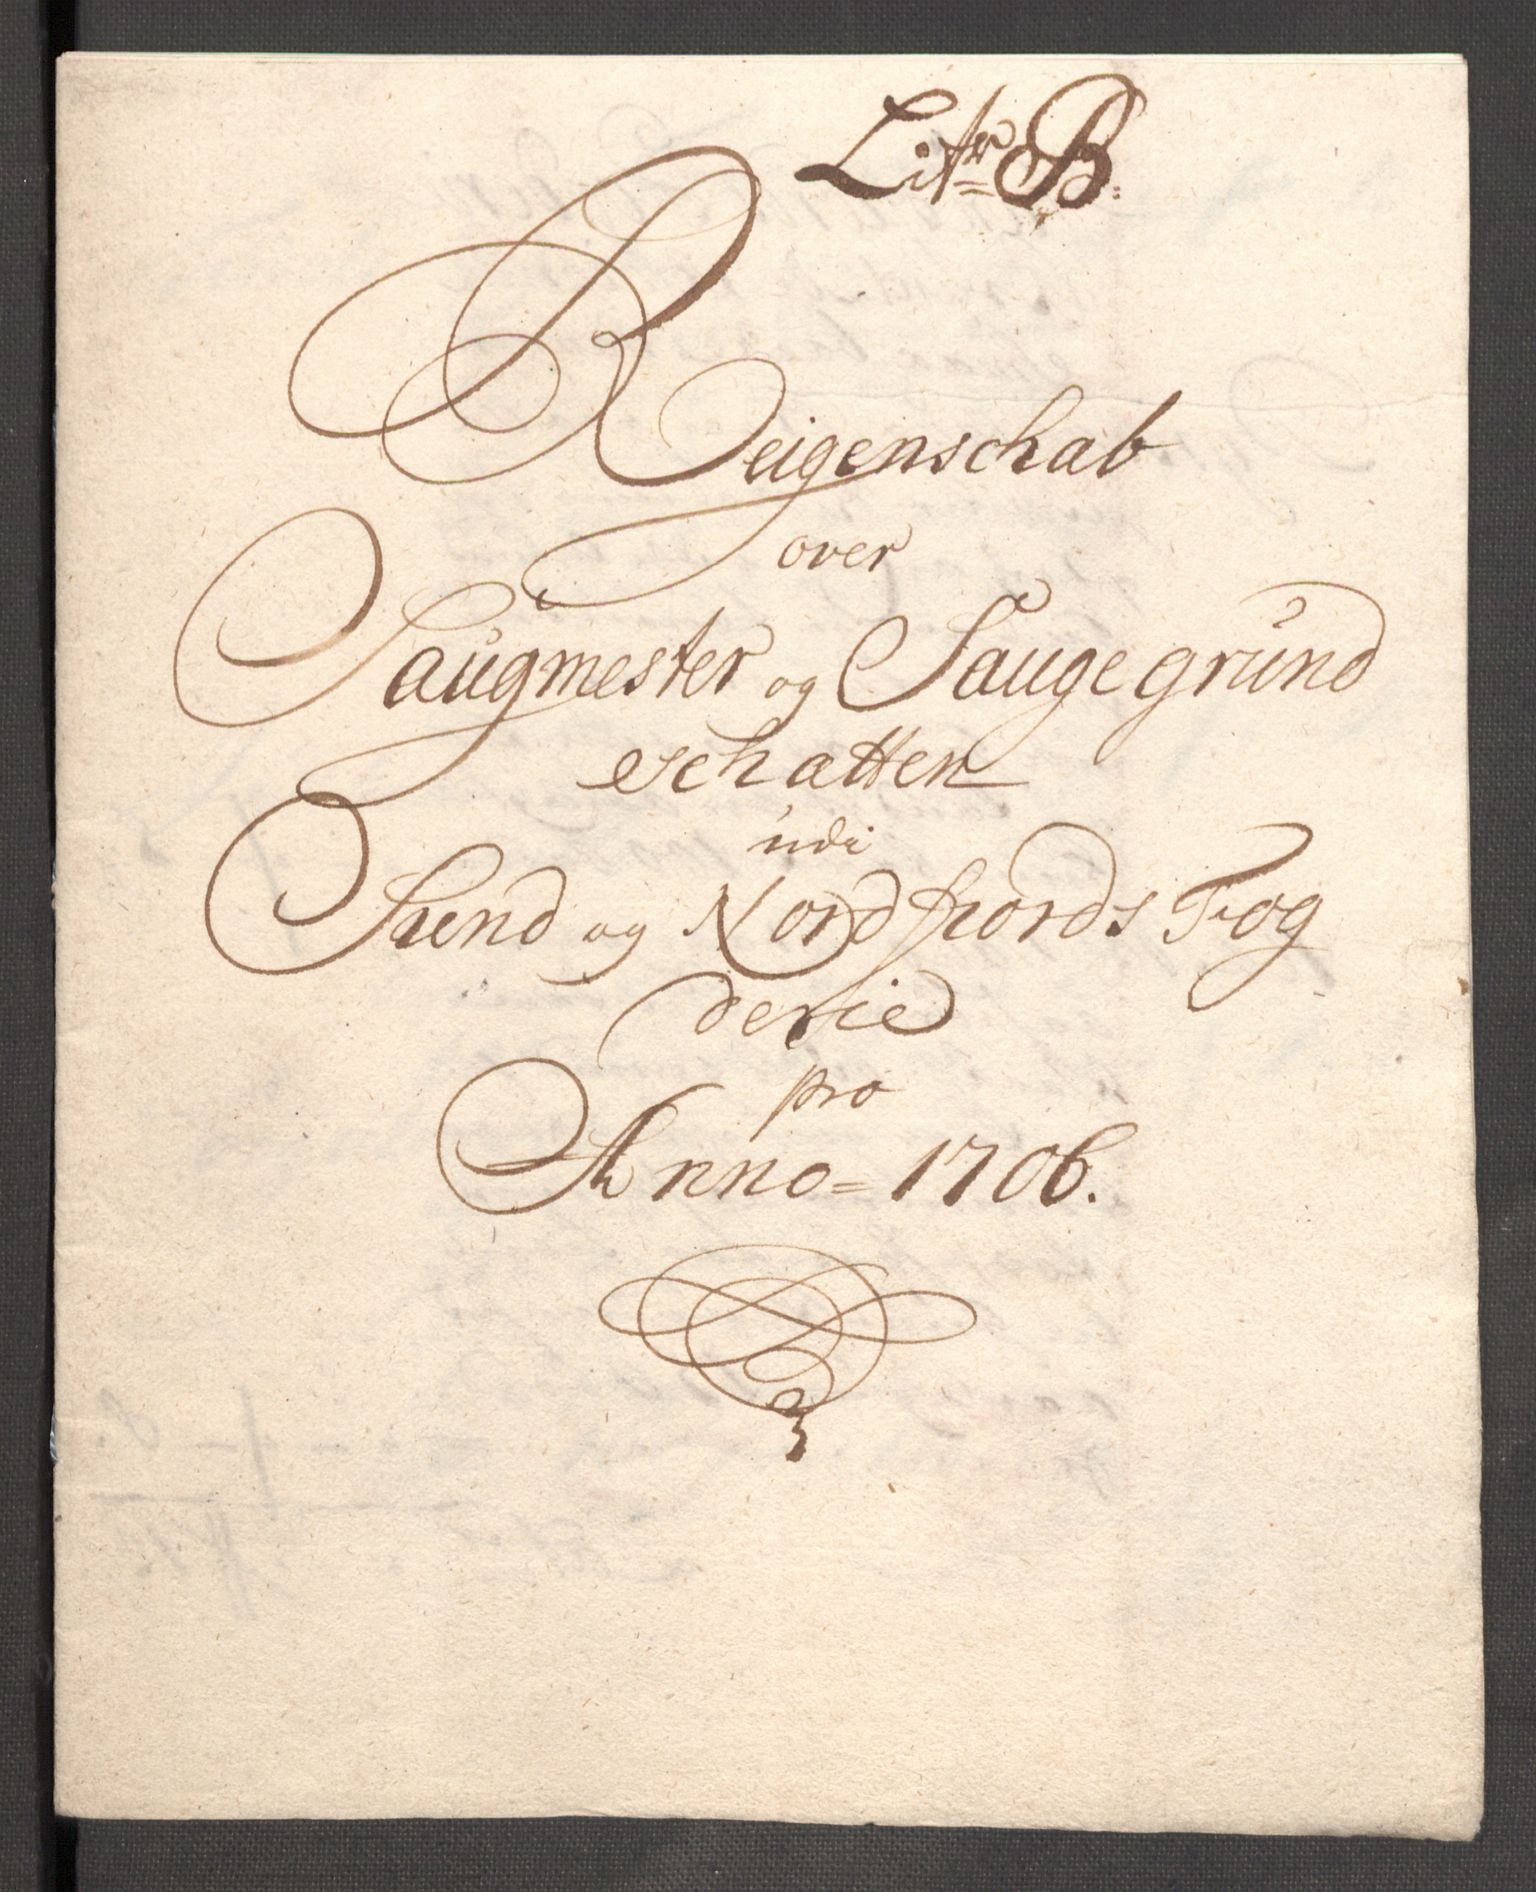 Litr B:
Reigenschab
over
Saugmester og Saugegrund
schatten
udi
Sund og Nordfiords Fog
derie
pro
Anno = 1706.